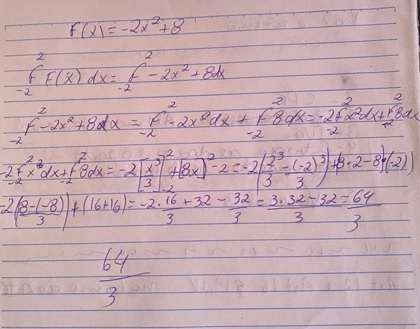 F(x) = -2x² + 8
∫₋₂² F(x) dx = ∫₋₂² -2x² + 8dx
∫₋₂² -2x² + 8dx = ∫₋₂² -2x² dx + ∫₋₂² 8dx = -2∫₋₂² x² dx + ∫₋₂² 8dx
-2∫₋₂² x² dx + ∫₋₂² 8dx = -2[x³/3]₋₂² + [8x]² -2 = -2(2³/3 - (-2)³/3) + (8·2-8·(-2)
-2(8-(-8)/3) + (16+16) = -2·16/3 + 32 - 32/3 = 3·32-32/3 = 64/3
64/3